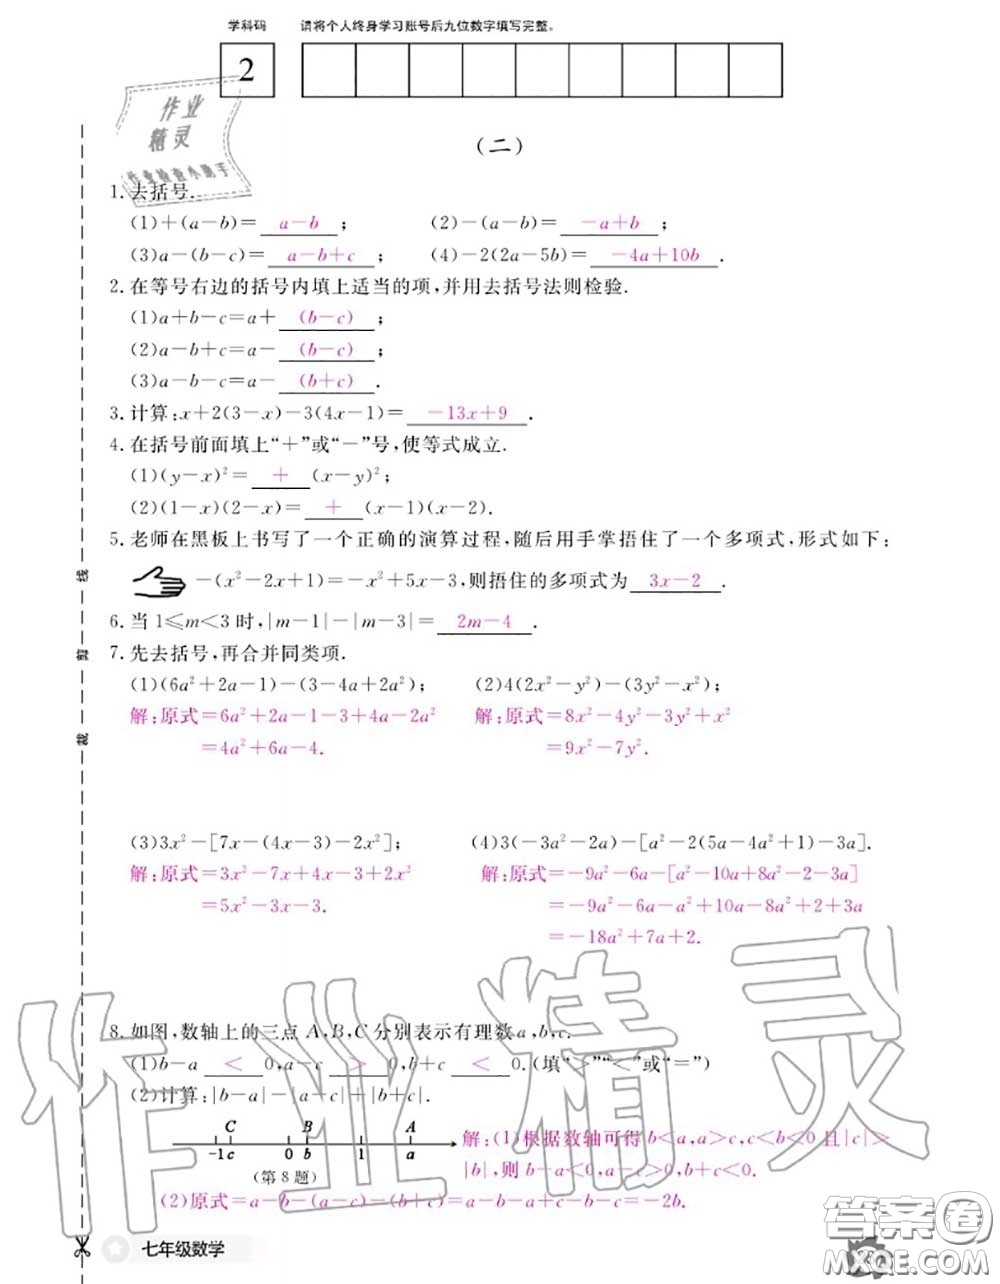 学科码 请将个人终身学习账号后九位数字填写完整。
2
作业
精灵
作业检查小助手
(二)
1.去括号.
(1)+(a-b)= a-b ; (2)-(a-b)= -a+b ;
(3)a-(b-c)= a-b+c ; (4)-2(2a-5b)= -4a+10b .
2.在等号右边的括号内填上适当的项,并用去括号法则检验.
(1)a+b-c=a+ (b-c) ;
(2)a-b+c=a- (b-c) ;
(3)a-b-c=a- (b+c) .
3.计算:x+2(3-x)-3(4x-1)= -13x+9 .
4.在括号前面填上“+”或“-”号,使等式成立.
(1)(y-x)²= + (x-y)²;
(2)(1-x)(2-x)= + (x-1)(x-2).
5.老师在黑板上书写了一个正确的演算过程,随后用手掌捂住了一个多项式,形式如下:
-(x²-2x+1)=-x²+5x-3,则捂住的多项式为 3x-2 .
6.当1≤m<3时,|m-1|-|m-3|= 2m-4 .
7.先去括号,再合并同类项.
(1)(6a²+2a-1)-(3-4a+2a²); (2)4(2x²-y²)-(3y²-x²);
解:原式=6a²+2a-1-3+4a-2a² 解:原式=8x²-4y²-3y²+x²
=4a²+6a-4. =9x²-7y².
(3)3x²-[7x-(4x-3)-2x²]; (4)3(-3a²-2a)-[a²-2(5a-4a²+1)-3a].
解:原式=3x²-7x+4x-3+2x² 解:原式=-9a²-6a-[a²-10a+8a²-2-3a]
=5x²-3x-3. =-9a²-6a-a²+10a-8a²+2+3a
=-18a²+7a+2.
8.如图,数轴上的三点A,B,C分别表示有理数a,b,c.
(1)b-a < 0,a-c > 0,b+c < 0.(填“>”“<”或“=”)
(2)计算:|b-a|-|a-c|+|b+c|.
C B A
-1 c 0 b 1 a
(第8题)
解:(1)根据数轴可得b<a,a>c,c<b<0且|c|>
|b|,则b-a<0,a-c>0,b+c<0.
(2)原式=a-b-(a-c)-(b+c)=a-b-a+c-b-c=-2b.
裁 剪 线
七年级数学
作业精灵
答案圈